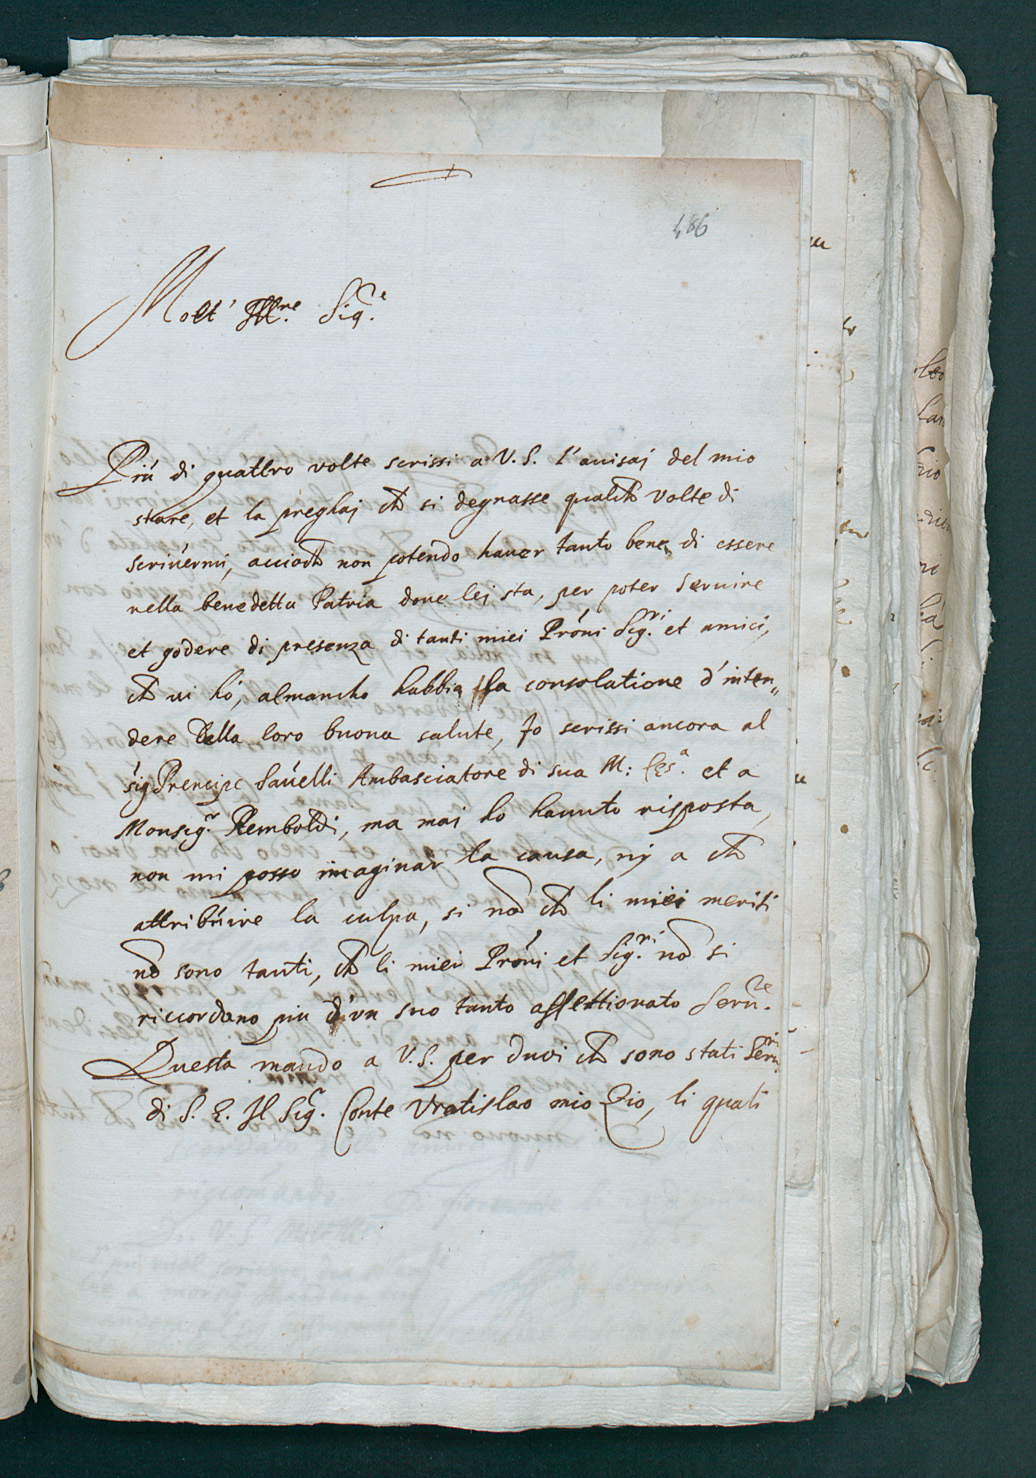 486
Molt' Ill.re Sig.e
Più di quattro volte scrissi a V. S. l'auisaj del mio
stare, et la preghaj ch si degnasse qualch volte di
scrivermi, accioch non potendo hauer tanto bene di essere
nella benedetta Patria doue lej sta, per poter seruire
et godere di presenza di tanti miei Prōni Sig.ri et amici,
ch ui hó, almancho habbia la consolatione d'inten„
dere della loro buona salute, Io scrissi ancora al
sig Prencipe Sauelli Ambasciatore di sua M: Ces.a et a
Monsig.r Remboldi, ma mai ho hauuto risposta,
non mi posso imaginar la causa, nj a ch
attribuire la culpa, si nō ch li miei meriti
nō sono tanti, ch li miei Prōni et Sig.ri nō si
riccordano piu d'un suo tanto affettionato Seru.re
Questa mando a V. S. per duoi ch sono stati Seru.ri
di S. E. Il Sig.r Conte Vratislao mio Zio, li quali